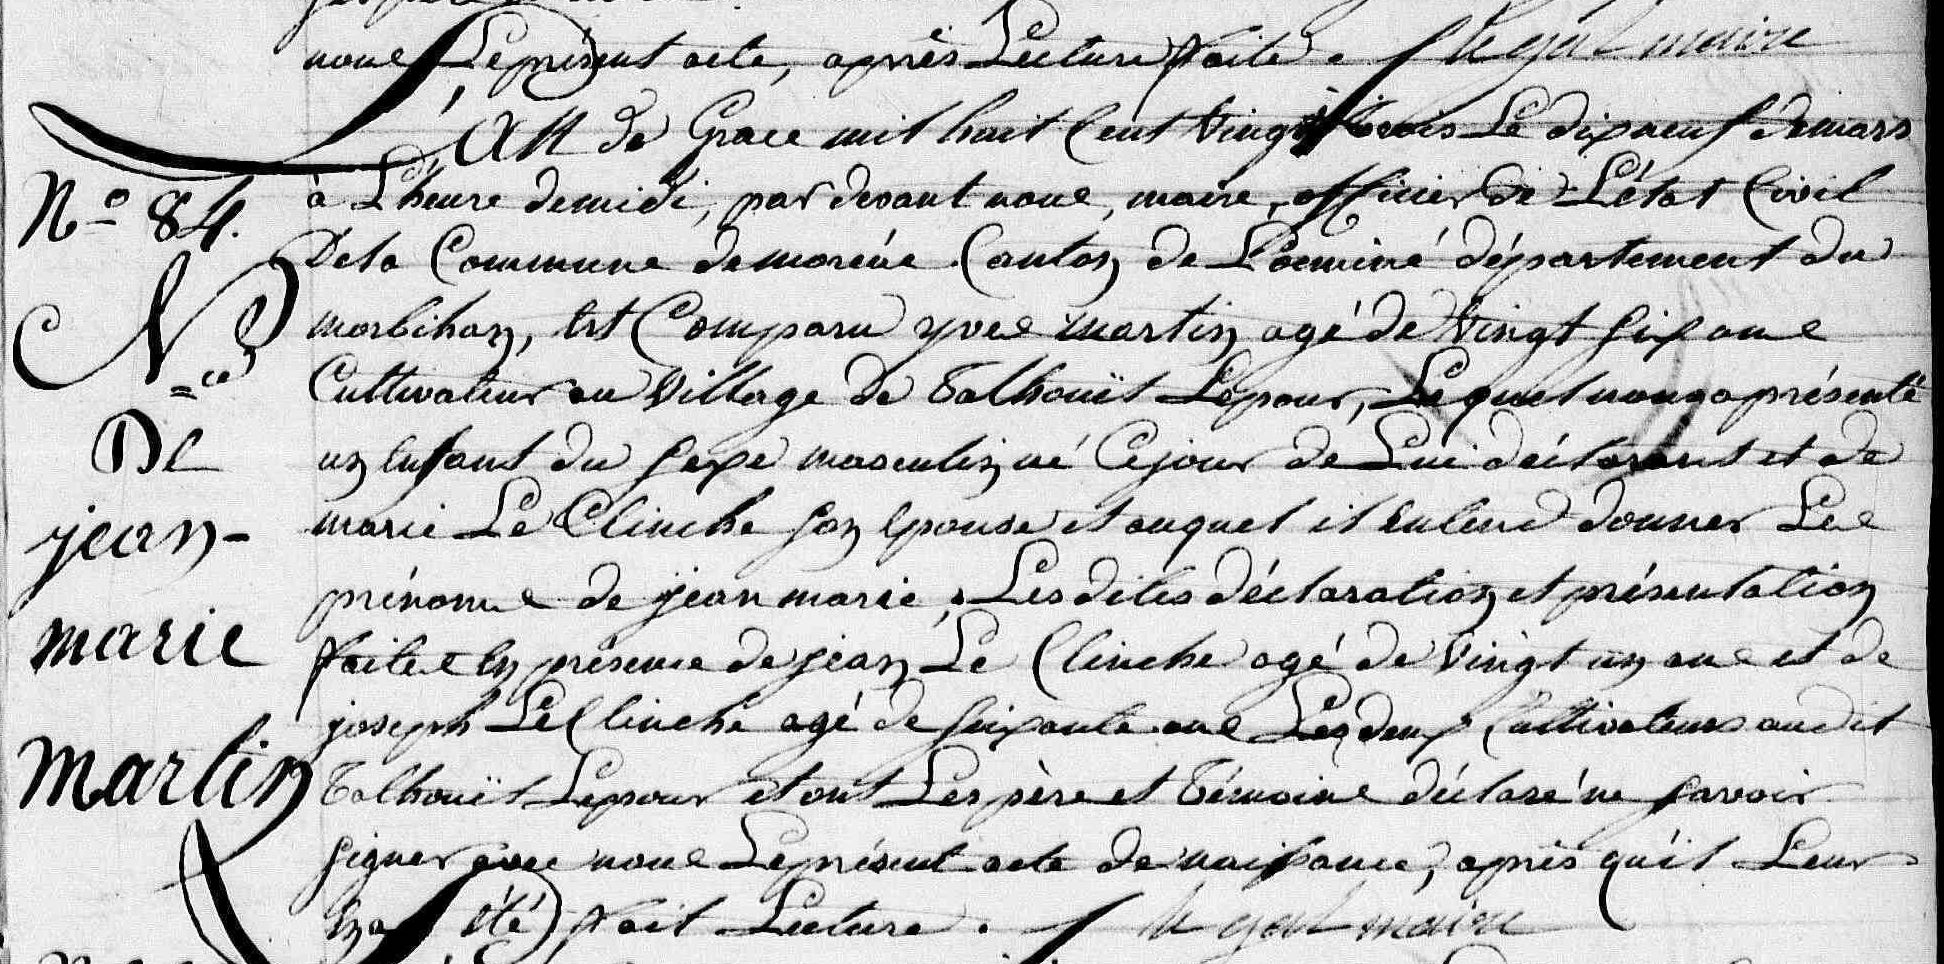 nous Le présent acte, après Lecture faite. Le gal maire
L'An de Grace mil huit Cent Vingt trois Le dix neuf de mars
N.o 84.
à L'heure de midi, par devant nous, maire, officier de L'état Civil
De la Commune de moréac Canton de Locminé département du
N.ce
morbihan, est Comparu yves martin agé de Vingt six ans
Cultivateur au Village de Talhouët Lepour, Lequel nous a présenté
De
un enfant du sexe masculin né Ce jour de Lui déclarant et de
jean-
marie Le Clinche son épouse et auquel il entend donner Les
prénoms de jean marie. Les dites déclaration et présentation
marie
faites en présence de jean Le Clinche agé de Vingt un ans et de
joseph Le Clinche agé de soixante ans Les deux Cultivateurs au dit
martin
Talhouët Lepour et ont Les père et Témoins déclaré ne savoir
signer avec nous Le présent acte de naissance, après qu'il Leur
En a été fait Lecture. Le gal maire